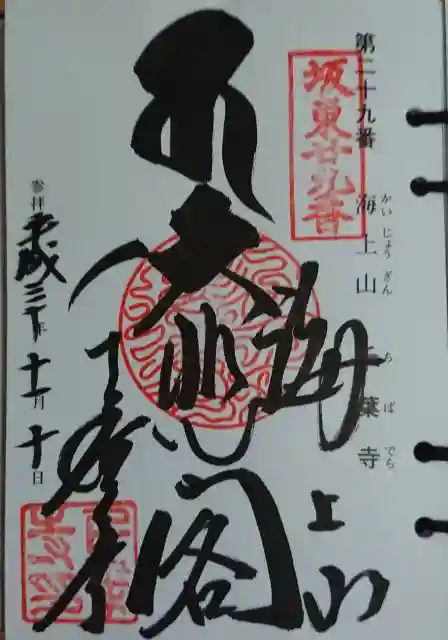 坂東廿九番
第二十九番 海上山 千葉寺
かい じょう ざん ち ば でら
海上山
大悲閣
千葉寺
参拝 平成三十年 十一月 十日